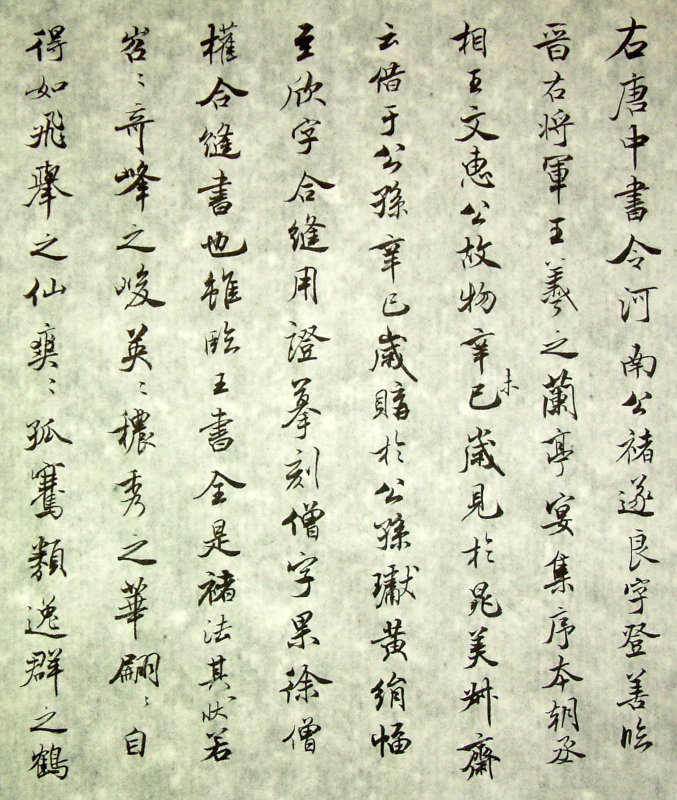 右唐中書令河南公褚遂良字登善臨
晉右將軍王羲之蘭亭宴集序本朝丞
相王文惠公故物辛巳未歲見於晁美叔齋
云借于公孫辛巳歲購於公孫瓛黃絹幅
至欣字合縫用證摹刻僧字果徐僧
權合縫書也雖臨王書全是褚法其狀若
岩〻奇峰之峻英〻穠秀之華翩〻自
得如飛舉之仙爽〻孤騫類逸群之鶴